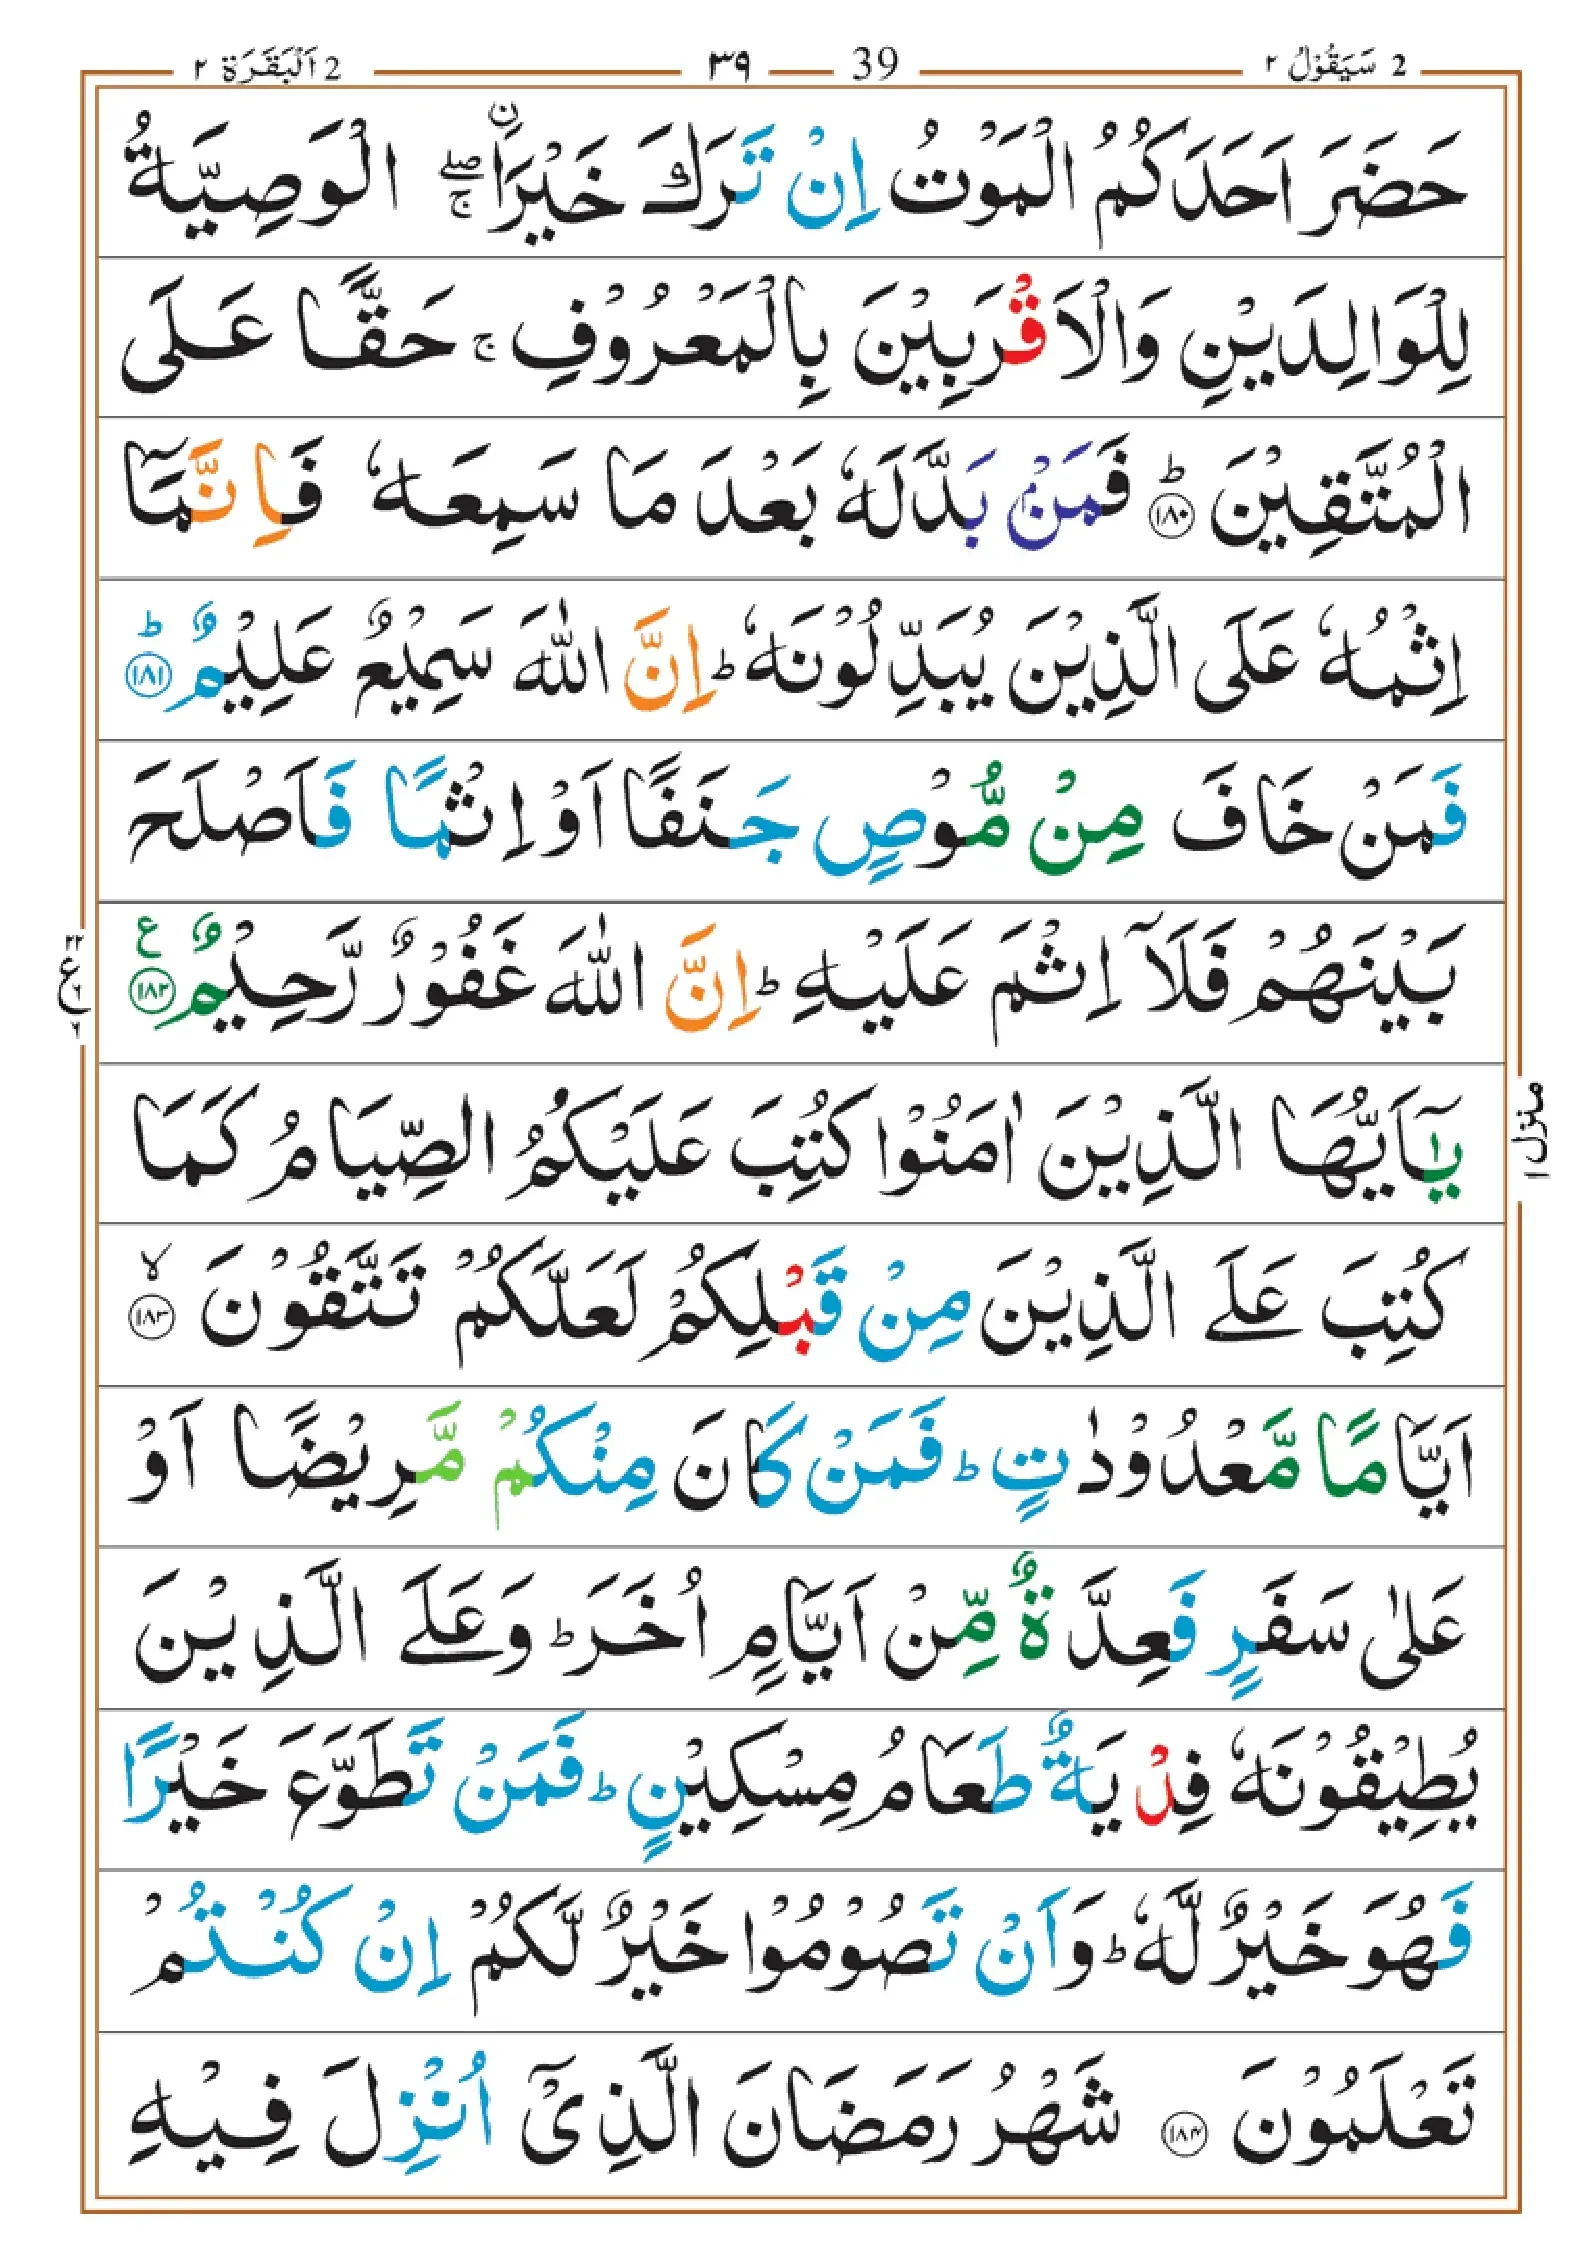 2 سَيَقُوْلُ ٢
39 ٣٩
2 اَلْبَقَرَة ٢
حَضَرَ اَحَدَكُمُ الْمَوْتُ اِنْ تَرَكَ خَيْرَاۨ ۖۚ الْوَصِيَّةُ
لِلْوَالِدَيْنِ وَالْاَقْرَبِيْنَ بِالْمَعْرُوْفِ ۚ حَقًّا عَلَى
الْمُتَّقِيْنَ ؕ ﴿١٨٠﴾ فَمَنْۢ بَدَّلَهٗ بَعْدَ مَا سَمِعَهٗ فَاِنَّمَاۤ
اِثْمُهٗ عَلَى الَّذِيْنَ يُبَدِّلُوْنَهٗ ؕ اِنَّ اللّٰهَ سَمِيْعٌ عَلِيْمٌ ؕ ﴿١٨١﴾
فَمَنْ خَافَ مِنْ مُّوْصٍ جَنَفًا اَوْ اِثْمًا فَاَصْلَحَ
بَيْنَهُمْ فَلَاۤ اِثْمَ عَلَيْهِ ؕ اِنَّ اللّٰهَ غَفُوْرٌ رَّحِيْمٌ ع ﴿١٨٢﴾
٢٢ ع ٦ ٦
يٰۤاَيُّهَا الَّذِيْنَ اٰمَنُوْا كُتِبَ عَلَيْكُمُ الصِّيَامُ كَمَا
منزل ١
كُتِبَ عَلَى الَّذِيْنَ مِنْ قَبْلِكُمْ لَعَلَّكُمْ تَتَّقُوْنَ ۙ ﴿١٨٣﴾
اَيَّامًا مَّعْدُوْدٰتٍ ؕ فَمَنْ كَانَ مِنْكُمْ مَّرِيْضًا اَوْ
عَلٰى سَفَرٍ فَعِدَّةٌ مِّنْ اَيَّامٍ اُخَرَ ؕ وَعَلَى الَّذِيْنَ
يُطِيْقُوْنَهٗ فِدْيَةٌ طَعَامُ مِسْكِيْنٍ ؕ فَمَنْ تَطَوَّعَ خَيْرًا
فَهُوَ خَيْرٌ لَّهٗ ؕ وَاَنْ تَصُوْمُوْا خَيْرٌ لَّكُمْ اِنْ كُنْتُمْ
تَعْلَمُوْنَ ﴿١٨٤﴾ شَهْرُ رَمَضَانَ الَّذِيْۤ اُنْزِلَ فِيْهِ